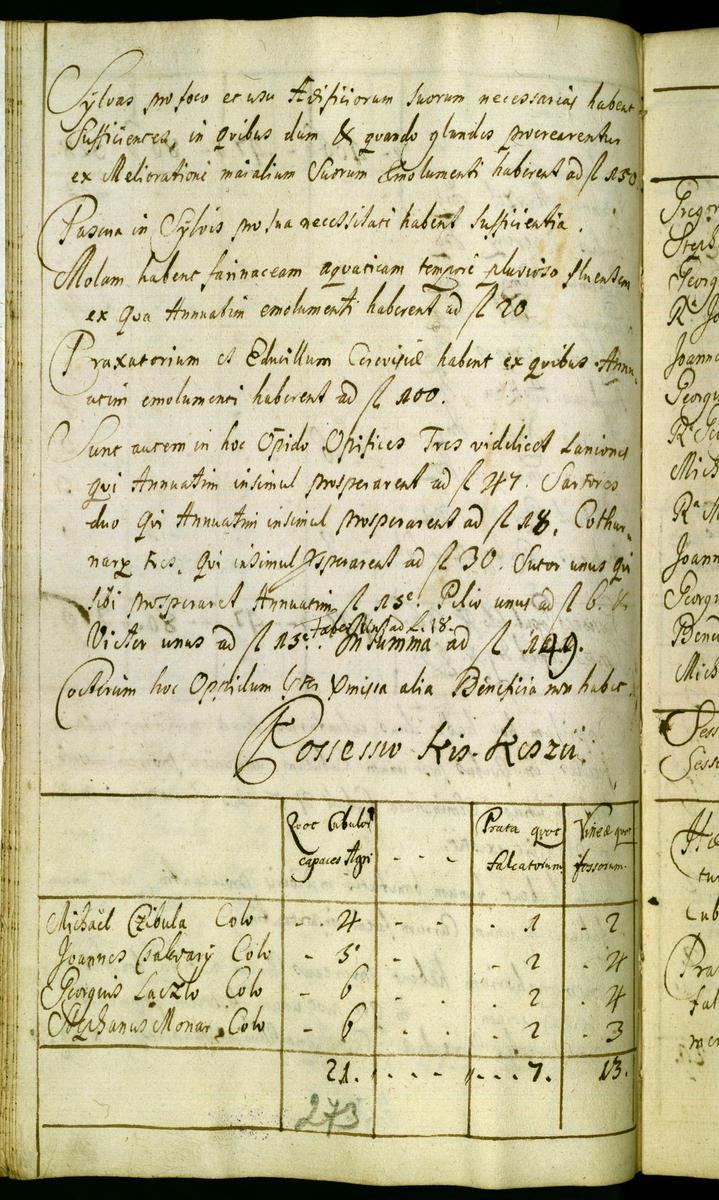 Sylvas pro foco et usu Ædificiorum suorum necessarias habent
sufficientes, in quibus dum & quando glandes procrearentur
ex Melioratione maialium suorum Emolumenti haberent ad fl 150
Pascua in Sylvis pro sua necessitati habent sufficientia.
Molam habent farinaceam aquaticam tempore pluvioso fluentem
ex qua Annuatim emolumenti haberent ad fl 20
Praxatorium et Educillum Cerevisiæ habent ex quibus Annu-
atim emolumenti haberent ad fl 100.
Sunt autem in hoc Opido Opifices Tres videlicet Laniones
qui Annuatim insimul prosperarent ad fl 47. Sartores
duo Qui Annuatim insimul prosperarent ad fl 18. Cothur-
narii tres, Qui insimul prosperarent ad fl 30. Sutor unus qui
sibi prosperaret Annuatim fl 15. Pelio unus ad fl 6. &
Faber unus ad f. 18.
Victor unus ad fl 15. In summa ad fl 149.
Cœterum hoc Oppidum præmissa alia Beneficia non habet.
Possessio Kis-Keszii.
Quot Cubulos Prata quot Vineæ quot
capaces Agri - - - falcatorum fossorum
Michaël Czibula Colo - - 4 - - - 1 - 2
Joannes Calvary Colo - 5 - 2 - 4
Georgius Laczlo Colo - 6 - 2 - 4
Stephanus Monar Colo - 6 - - - 2 - 3
21. - - - - - - 7. 13.
273
Gregor
Steph
Georg
Ra Jo
Joanne
Georgi
Ra Geo
Mich
Ra M
Joann
Georgi
Bene
Mich
Sess
Sess
Hæ
tu
cub
Pra
fal
mer